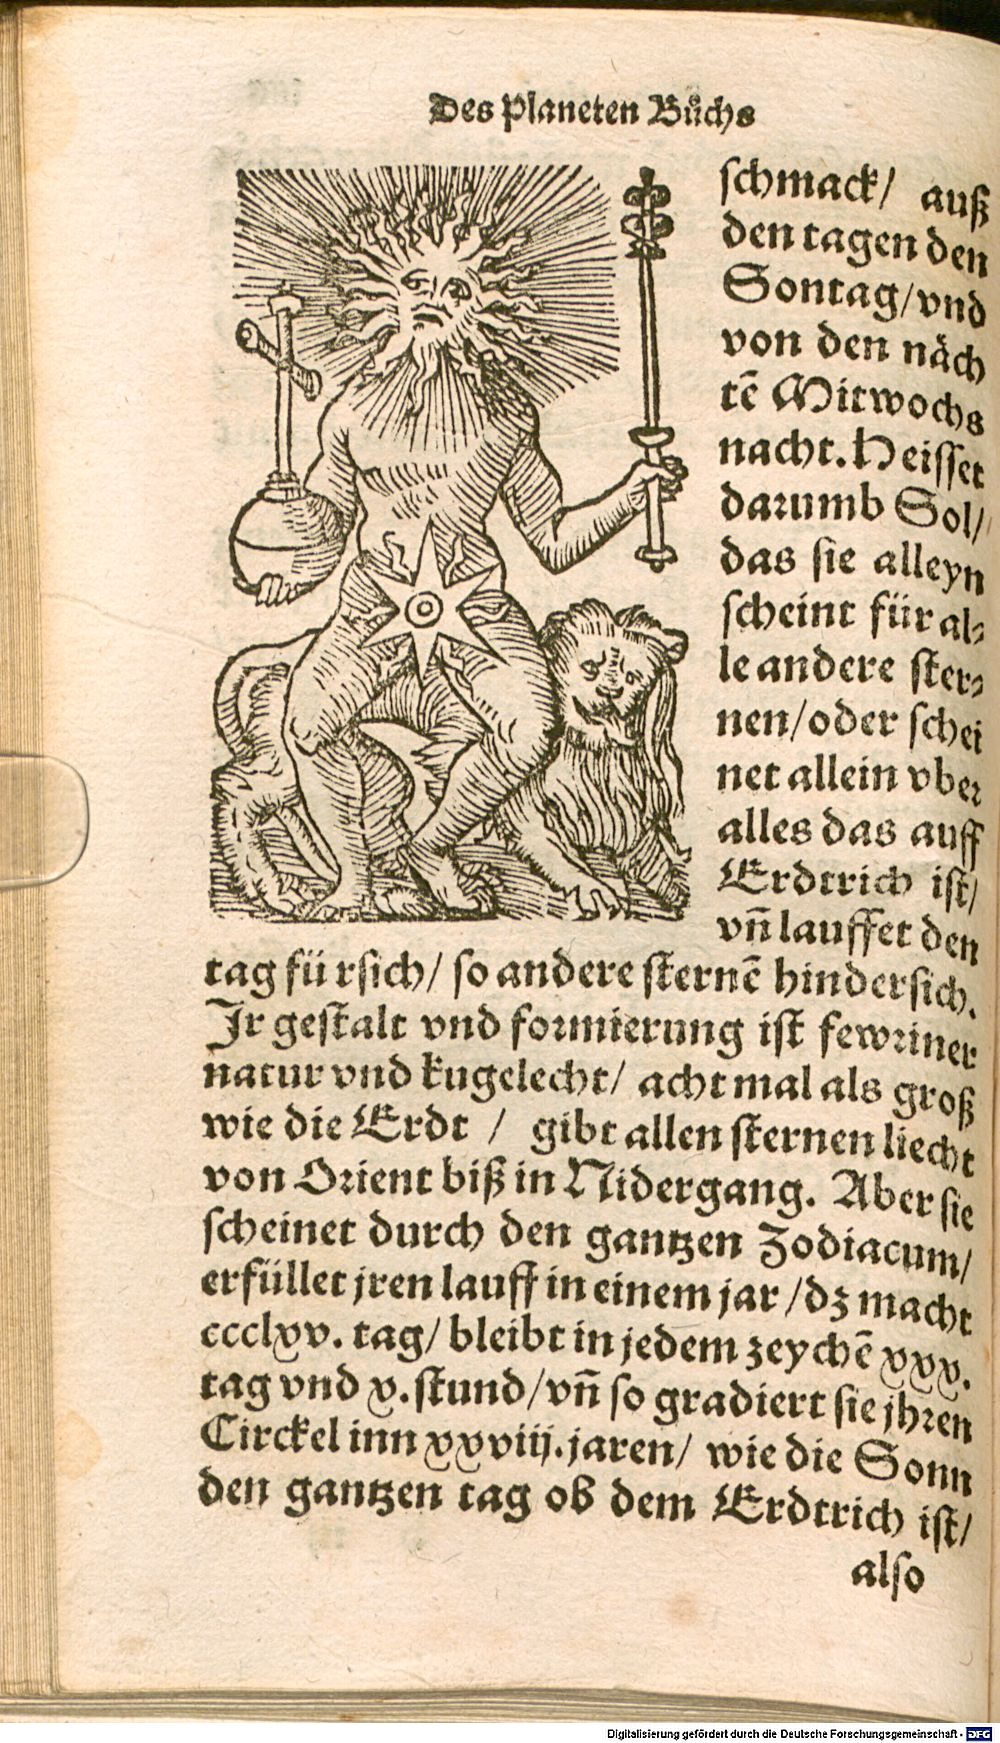 Des Planeten Bůchs
schmack/ auß
den tagen den
Sontag/vnd
von den näch
tē Mitwochs
nacht. Heisset
darumb Sol/
das sie alleyn
scheint für al⸗
le andere ster⸗
nen/oder schei
net allein vber
alles das auff
Erdtrich ist/
vñ lauffet den
tag fürsich/ so andere sternē hindersich.
Jr gestalt vnd formierung ist fewriner
natur vnd kugelecht/ acht mal als groß
wie die Erdt / gibt allen sternen liecht
von Orient biß in Nidergang. Aber sie
scheinet durch den gantzen Zodiacum/
erfüllet jren lauff in einem jar /dz macht
ccclxv. tag/ bleibt in jedem zeychē xxx.
tag vnd x. stund/vñ so gradiert sie jhren
Circkel inn xxviij.jaren/ wie die Sonn
den gantzen tag ob dem Erdtrich ist/
also
Digitalisierung gefördert durch die Deutsche Forschungsgemeinschaft - DFG